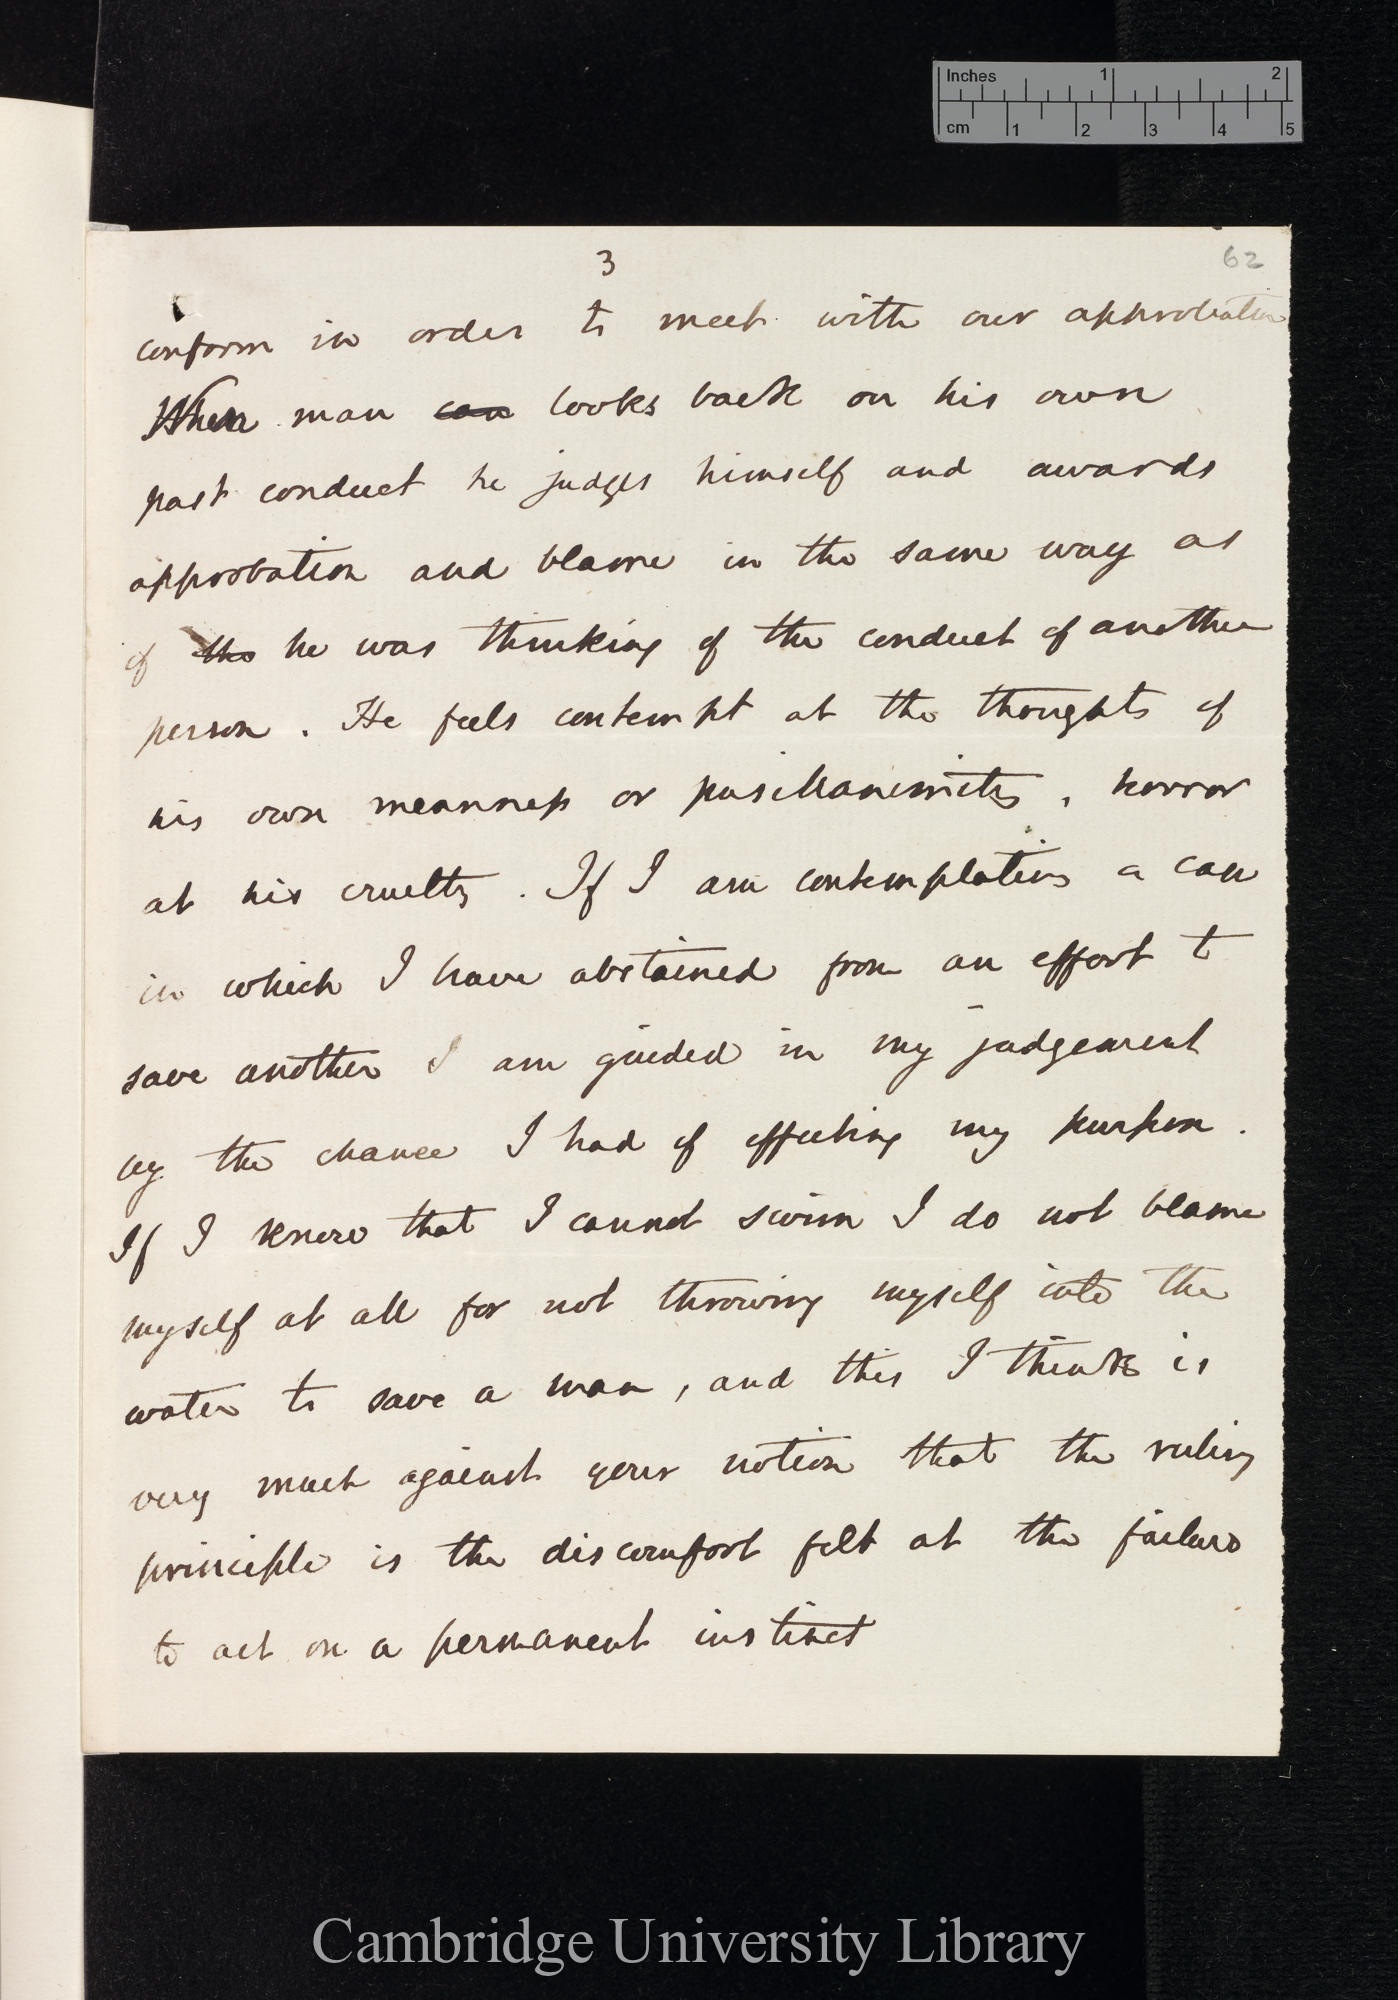 Inches 1 2
cm 1 2 3 4 5
3
62
conform in order to meet with our approbation
When man can looks back on his own
past conduct he judges himself and awards
approbation and blame in the same way as
if the he was thinking of the conduct of another
person. He feels contempt at the thoughts of
his own meanness or pusillanimity, horror
at his cruelty. If I am contemplating a case
in which I have abstained from an effort to
save another I am guided in my judgement
by the chance I had of effecting my purpose.
If I knew that I cannot swim I do not blame
myself at all for not throwing myself into the
water to save a man, and this I think is
very much against your notion that the ruling
principle is the discomfort felt at the failure
to act on a permanent instinct
Cambridge University Library